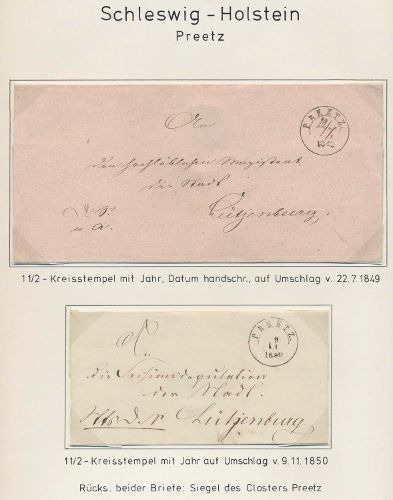 Schleswig - Holstein
Preetz
PREETZ.
22/7
1849
An
den hochlöblichen Magistrat
der Stadt
Lütjenburg.
D. S.
u. A.
11/2 - Kreisstempel mit Jahr, Datum handschr., auf Umschlag v. 22.7.1849
PREETZ.
9
11
1850
An
die
der Stadt
Lütjenburg
11/2 - Kreisstempel mit Jahr auf Umschlag v. 9.11.1850
Rücks. beider Briefe: Siegel des Closters Preetz